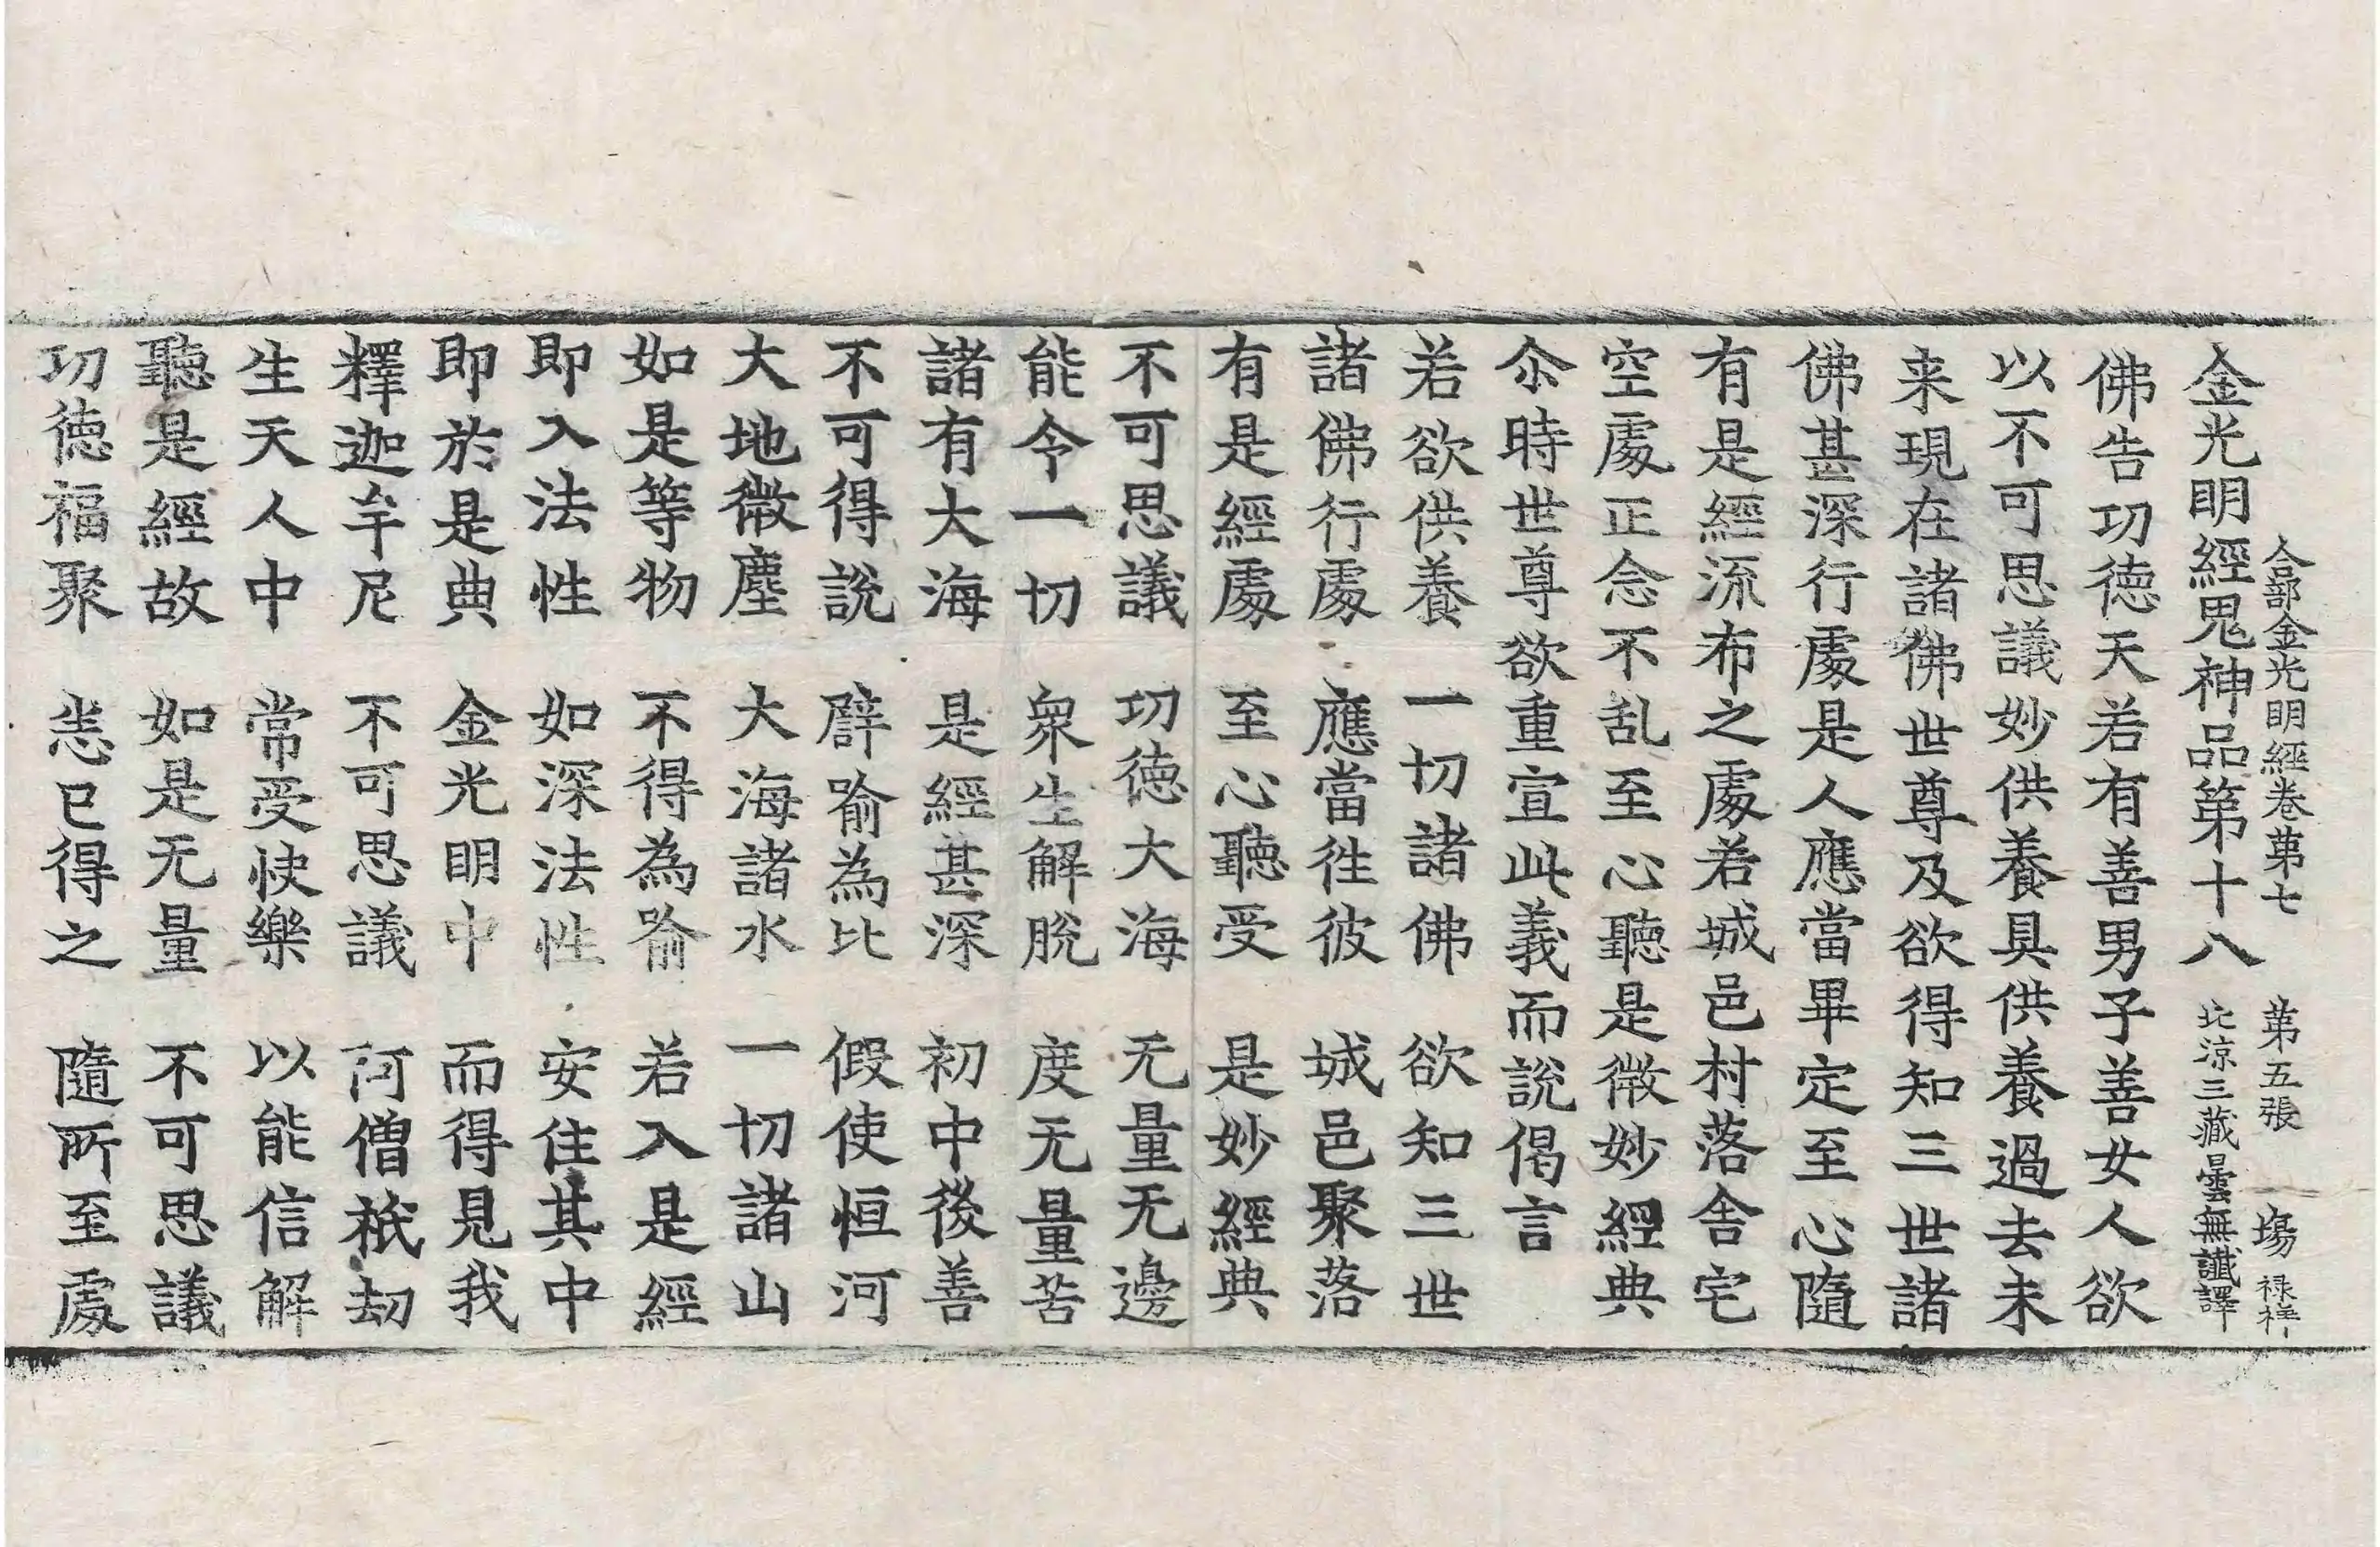 合部金光明經卷苐七 苐五張 塲 禄祥
金光明經鬼神品第十八 北涼三藏曇無讖譯
佛告功徳天若有善男子善女人欲
以不可思議妙供養具供養過去未
来現在諸佛世尊及欲得知三世諸
佛甚深行處是人應當畢定至心隨
有是經流布之處若城邑村落舎宅
空處正念不乱至心聽是微妙經典
尒時世尊欲重宣此義而說偈言
若欲供養 一切諸佛 欲知三世
諸佛行處 應當徃彼 城邑聚落
有是經處 至心聽受 是妙經典
不可思議 功徳大海 无量无邊
能令一切 衆生解脫 度无量苦
諸有大海 是經甚深 初中後善
不可得說 譬喻為比 假使恒河
大地微塵 大海諸水 一切諸山
如是等物 不得為喻 若入是經
即入法性 如深法性 安住其中
即於是典 金光明中 而得見我
釋迦牟尼 不可思議 阿僧祇劫
生天人中 常受快樂 以能信解
聽是經故 如是无量 不可思議
功徳福聚 悉已得之 隨所至處